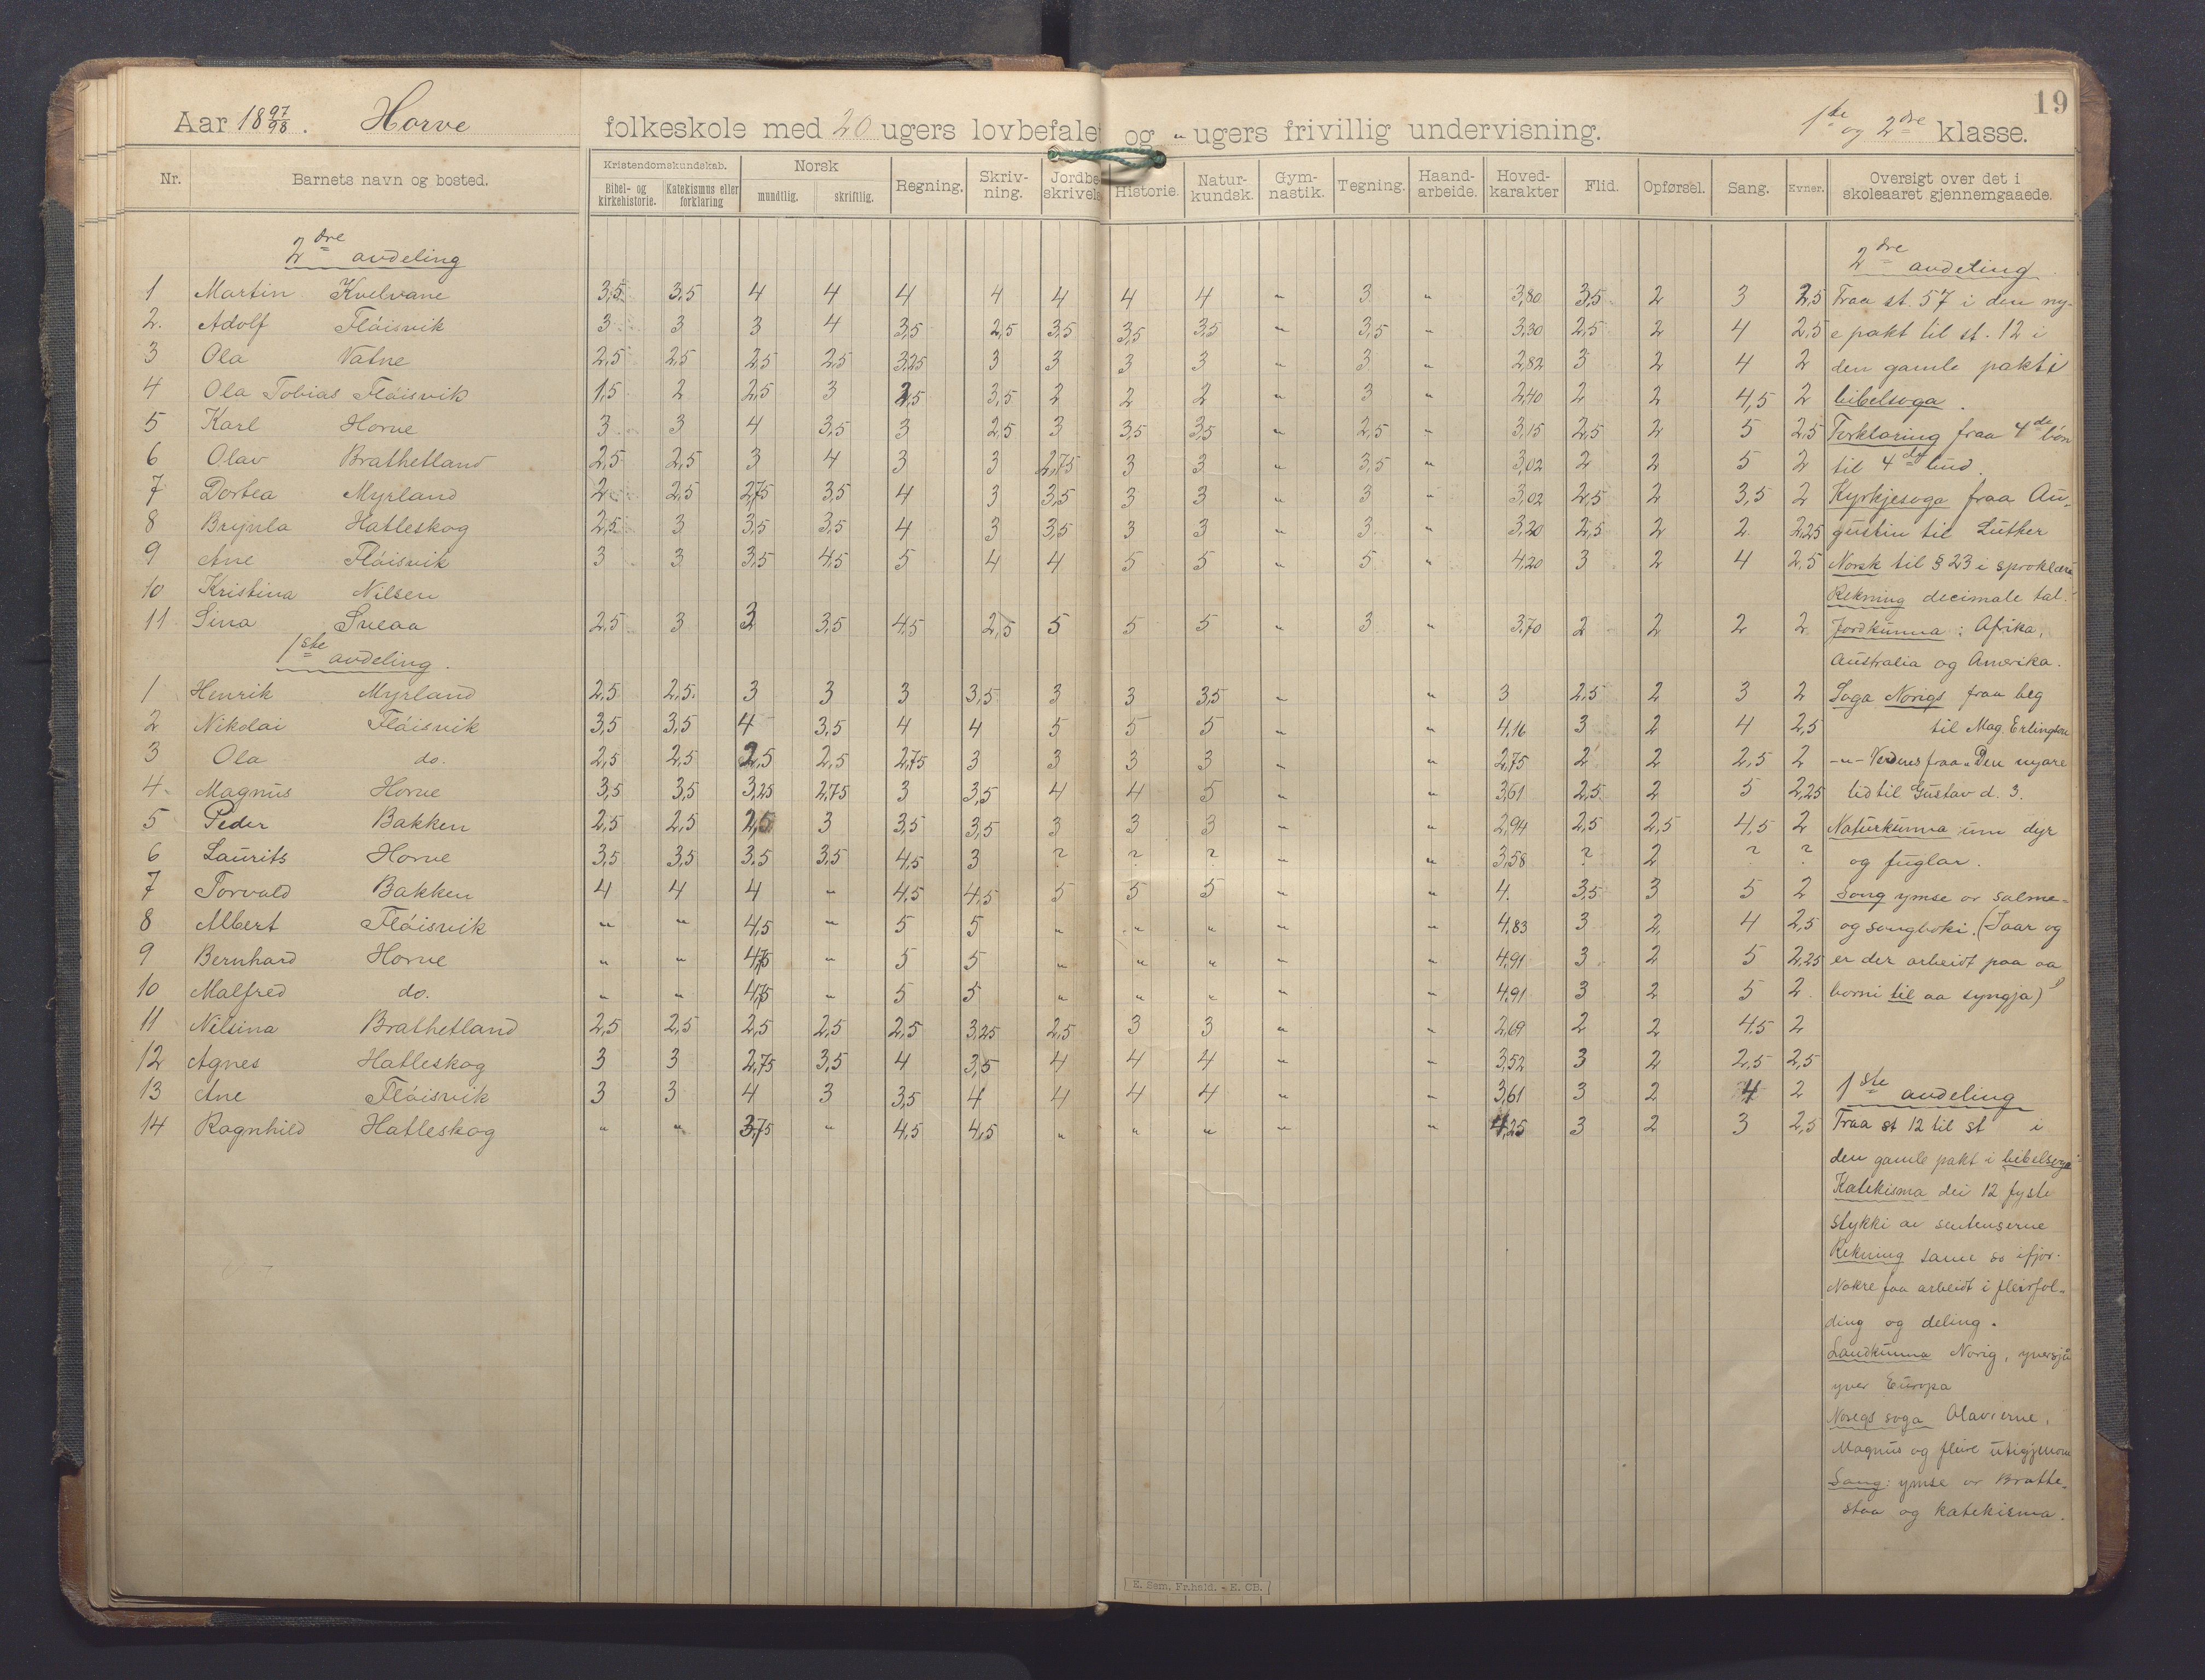 19
Aar 18 97/98. Horve folkeskole med 20 ugers lovbefalet og " ugers frivillig undervisning. 1ste og 2dre klasse.
Nr. Barnets navn og bosted. Kristendomskundskab. Bibel- og kirkehistorie. Katekismus eller forklaring Norsk mundtlig. skriftlig. Regning. Skriv-ning. Jordbe-skrivels Historie. Natur-kundsk. Gym-nastik. Tegning. Haand-arbeide. Hoved-karakter Flid. Opførsel. Sang. Evner. Oversigt over det i skoleaaret gjennemgaaede.
2dre avdeling
1 Martin Kvelvane 3,5 3,5 4 4 4 4 4 4 4 " 3 " 3,80 3,5 2 3 2,5
2. Adolf Flóisvik 3 3 3 4 3,5 2,5 3,5 3,5 3,5 " 3,5 " 3,30 2,5 2 4 2,5
3 Ola Vatne 2,5 2,5 2,5 2,5 3,25 3 3 3 3 " 3 " 2,82 3 2 4 2
4 Ola Tobias Flóisvik 1,5 2 2,5 3 2,5 3,5 2 2 2 " 3 " 2,40 2 2 4,5 2
5 Karl Horve 3 3 4 3,5 3 2,5 3 3,5 3,5 " 2,5 " 3,15 2,5 2 5 2,5
6 Olav Brathetland 2,5 2,5 3 4 3 3 2,75 3 3 " 3,5 " 3,02 2 2 5 2
7 Dortea Myrland 2 2,5 2,75 3,5 4 3 3,5 3 3 " 3 " 3,02 2,5 2 3,5 2
8 Brynla Hatleskog 2,5 3 3,5 3,5 4 3 3,5 3 3 " 3 " 3,20 2,5 2 2 2,25
9 Ane Flóisvik 3 3 3,5 4,5 5 4 4 5 5 " 5 " 4,20 3 2 4 2,5
10 Kristina Nilsen
11 Sina Sveaa 2,5 3 3 3,5 4,5 2,5 5 5 5 " 3 " 3,70 2 2 2 2
1ste avdeling.
1 Henrik Myrland 2,5 2,5 3 3 3 3,5 3 3 3,5 " " 3 2,5 2 3 2
2 Nikolai Flóisvik 3,5 3,5 4 3,5 4 4 5 5 5 " " 4,16 3 2 4 2,5
3 Ola do. 2,5 2,5 2,5 2,5 2,75 3 3 3 3 " " 2,75 2 2 2,5 2
4 Magnus Horve 3,5 3,5 3,25 2,75 3 3,5 4 4 5 " " 3,61 2,5 2 5 2,25
5 Peder Bakken 2,5 2,5 2,5 3 3,5 3,5 3 3 3 " " 2,94 2,5 2,5 4,5 2
6 Laurits Horve 3,5 3,5 3,5 3,5 4,5 3 ? ? ? " " 3,58 ? 2 ? ?
7 Torvald Bakken 4 4 4 " 4,5 4,5 5 5 5 " " 4. 3,5 3 5 2
8 Albert Flóisvik " " 4,5 " 5 5 " " " " " 4,83 3 2 4 2,5
9 Bernhard Horve " " 4,75 " 5 5 " " " " " 4,91 3 2 5 2,25
10 Malfred do. " " 4,75 " 5 5 " " " " " 4,91 3 2 5 2
11 Nilsina Brathetland 2,5 2,5 2,5 2,5 2,5 3,25 2,5 3 3 " " 2,69 2 2 4,5 2
12 Agnes Hatleskog 3 3 2,75 3,5 4 3,5 4 4 4 " " 3,52 3 2 2,5 2,5
13 Ane Flóisvik 3 3 4 3 3,5 4 4 4 4 " " 3,61 3 2 4 2
14 Ragnhild Hatleskog " " 3,75 " 4,5 4,5 " " " " " 4,25 3 2 3 2,5
2dre avdeling
Fraa st. 57 i den ny-
e pakt til st. 12 i
den gamle pakti
bibelsoga.
Forklaring fraa 4de bón
til 4de bud.
Kyrkjesoga fraa Au-
gustin til Luther
Norsk til § 23 i sproklæra
Rekning decimale tal.
Jordkunna: Afrika,
Australia og Amerika.
Soga Norigs fraa beg
til Mag. Erlingson
-"- Verdens fraa "Den nyare
tid til Gustav d. 3.
Naturkunna um dyr
og fuglar.
Song ymse or salme-
og songboki. (Iaar og
er der arbeidt paa aa
borni til aa syngja)
1ste avdeling
Fraa st 12 til st i
den gamle pakt i bibelsoga
Katekisma dei 12 fyste
stykki av sentenserne
Rekning same so ifjor.
Nokre faa arbeidt i fleirfol-
ding og deling.
Landkunna Norig, yversju
yver Europa
Noregs soga Olavierne,
Magnus og fleire utigjenom
Song: ymse or Bratte-
staa og katekisma.
E. Sem. Fr.hald. - E. CB.